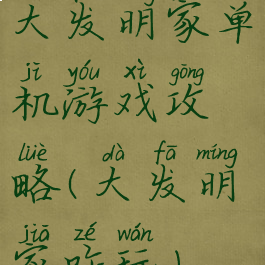 大发明家单
jī yóu xì gōng
机游戏攻
lüè dà fā míng
略(大发明
jiā zé wán
家咋玩)